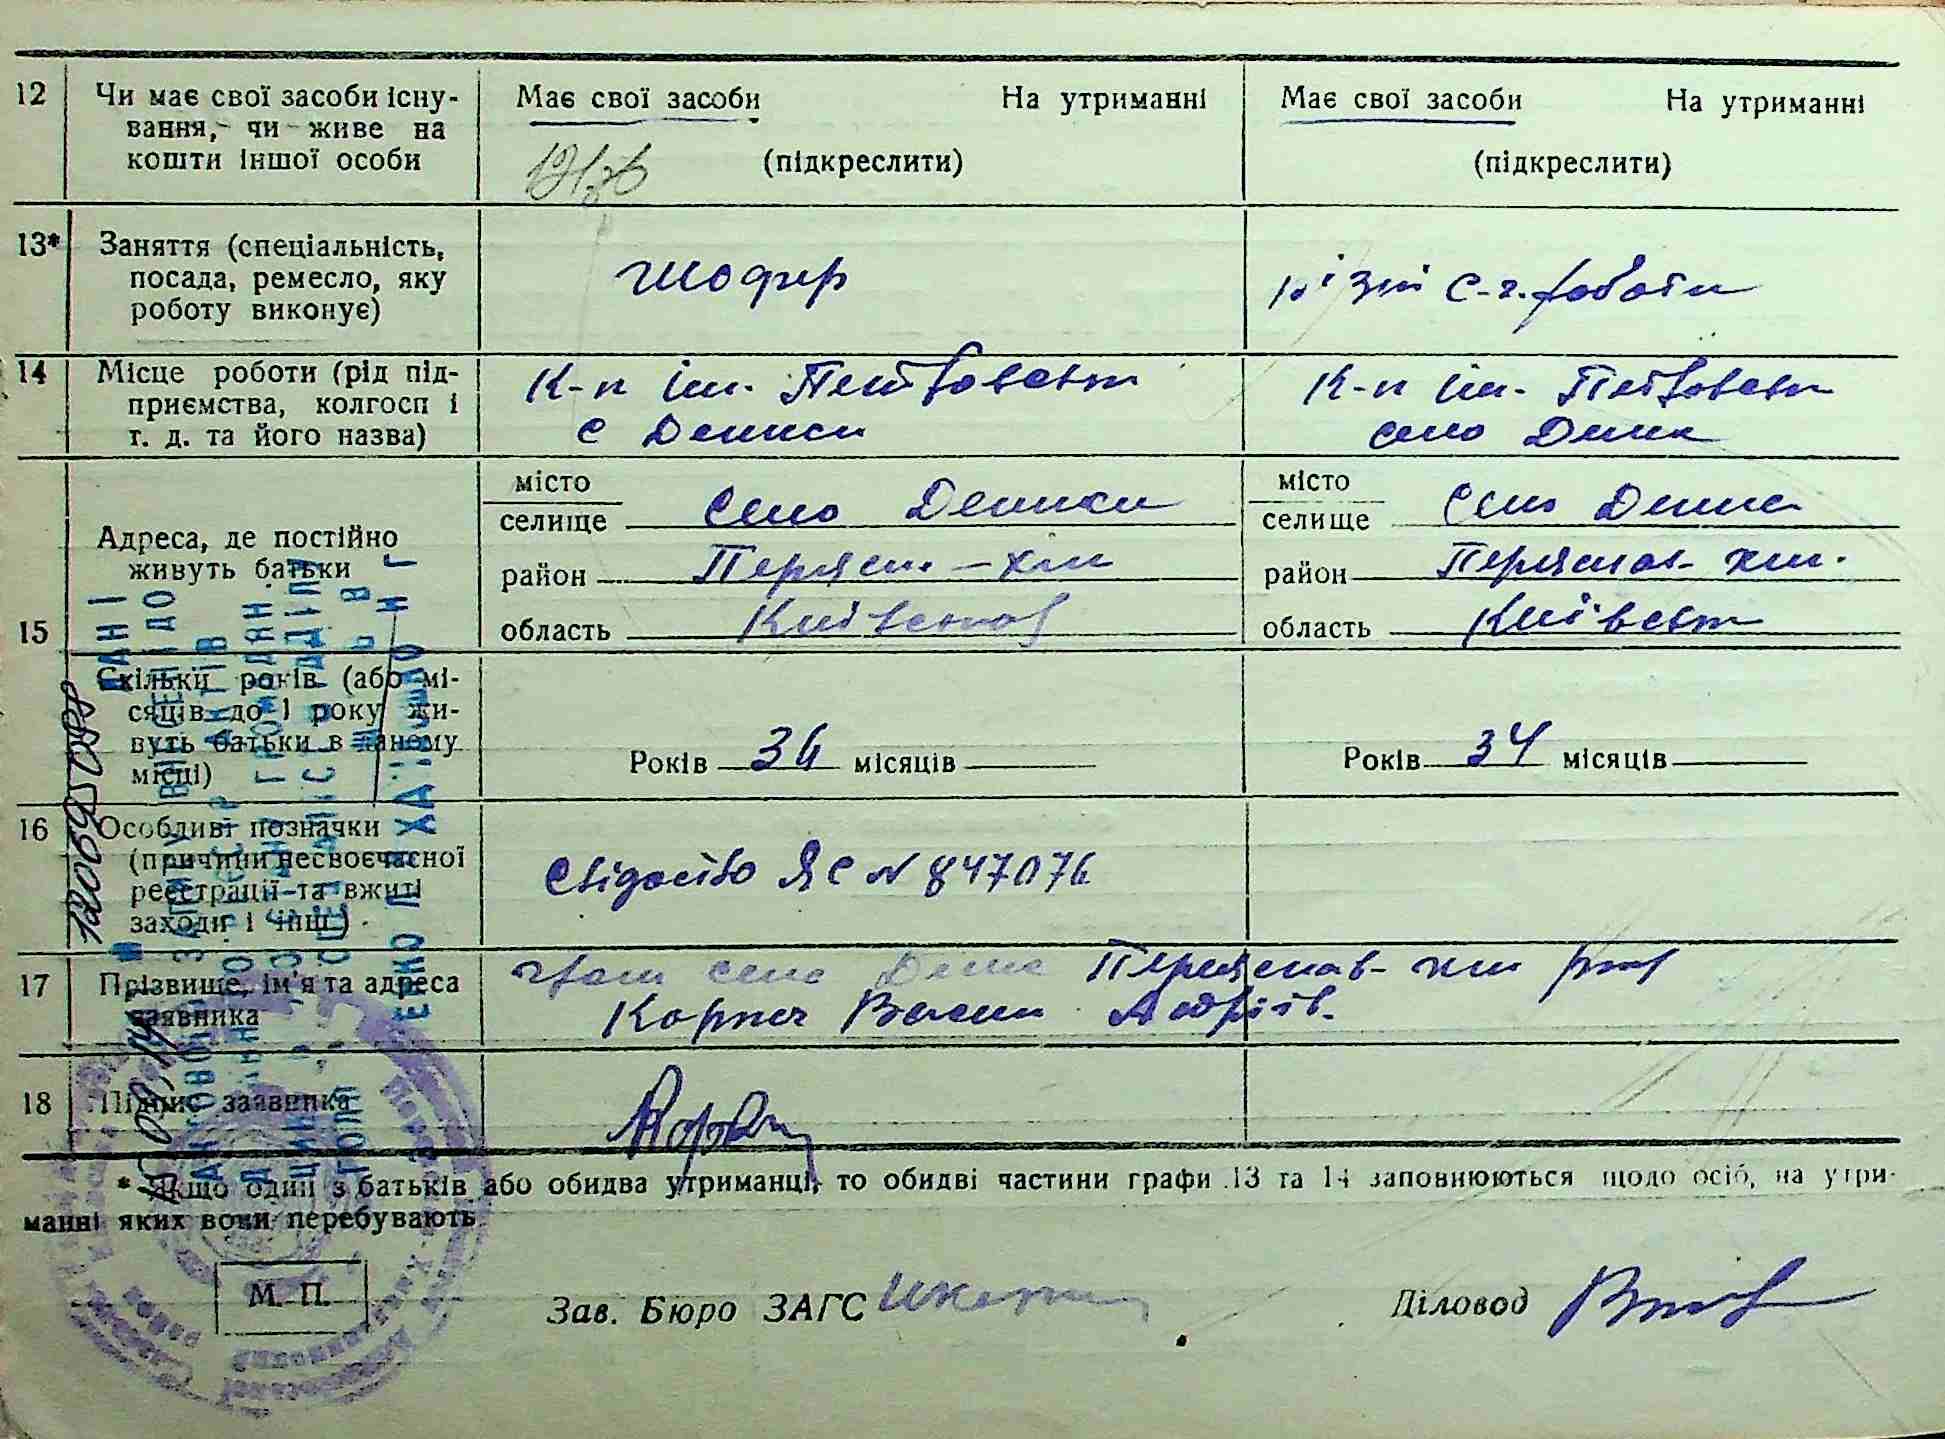 12 Чи має свої засоби існу-
вання, чи живе на
кошти іншої особи
Має свої засоби На утриманні
(підкреслити)
Має свої засоби На утриманні
(підкреслити)
13* Заняття (спеціальність,
посада, ремесло, яку
роботу виконує)
шофер
різні с-г. роботи
14 Місце роботи (рід під-
приємства, колгосп і
т. д. та його назва)
К-п ім. Петровськ
с Дениси
К-п ім. Петровськ
село Дениси
15 Адреса, де постійно
живуть батьки
місто
селище Село Дениси
район Переясл.-хм
область Київська
місто
селище Село Дениси
район Переяслав-хм.
область Київськ
Скільки років (або мі-
сяців до 1 року жи-
вуть батьки в даному
місці)
Років 36 місяців
Років 34 місяців
16 Особливі позначки
(причини несвоєчасної
реєстрації та вжиті
заходи і інш.)
Свідоцтво ЯС N 847076
17 Прізвище, ім'я та адреса
заявника
село Дениси Переяслав-хм
Андріїв.
18 Підпис заявника
* Якщо один з батьків або обидва утриманці, то обидві частини графи 13 та 14 заповнюються щодо осіб, на утри-
манні яких вони перебувають
М. П.
Зав. Бюро ЗАГС
Діловод